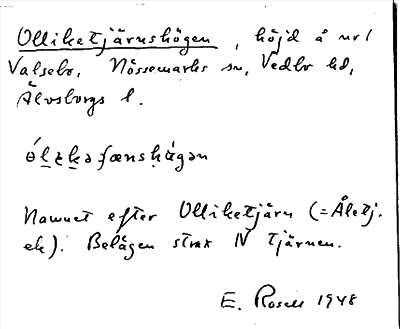 Olliketjärnshögen, höjd å nr 1
Valsebo, Nössemarks sn, Vedbo hd,
Älvsborgs l.
Namnet efter Olliketjärn (= Åletj.
ek). Belägen strax N tjärnen.
E. Rosell 1948